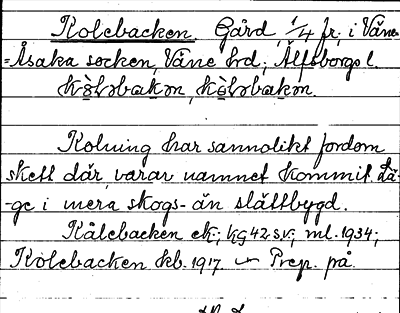 Kolebacken. Gård, 1/4 fr, i Väne-
=Åsaka socken, Väne hd, Älfsborgs l.
Kolning har sannolikt fordom
skett där, varav namnet kommit. Lä-
-ge i mera skogs- än slättbygd.
Kålebacken ek.; kg 42 sv.; ml. 1934;
Kolebacken kb. 1917. — Prep. på